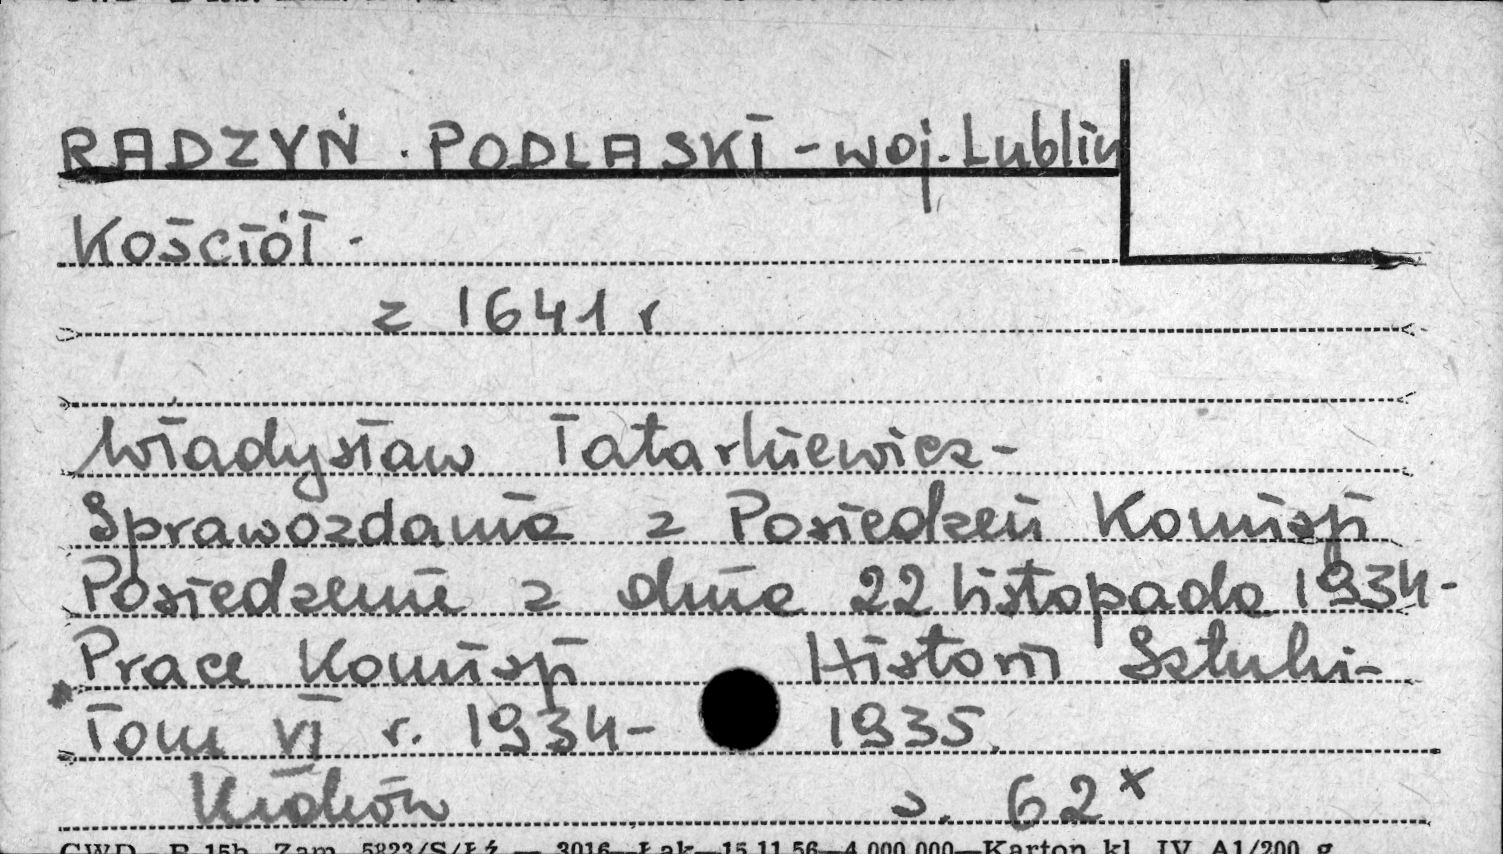 RADZYŃ - PODLASKI - woj. Lublin
Kościół -
z 1641 r
Władysław Tatarkiewicz -
Sprawozdania z Posiedzeń Komisji
Posiedzenie z dnia 22 listopada 1934 -
Prace Komisji Historii Sztuki -
Tom VI r. 1934 - 1935.
Kraków s. 62*
CWD - R-15b. Zam. 5823/S/Łź — 3016—Łak—15.11.56—4.000.000—Karton kl. IV A1/200 g